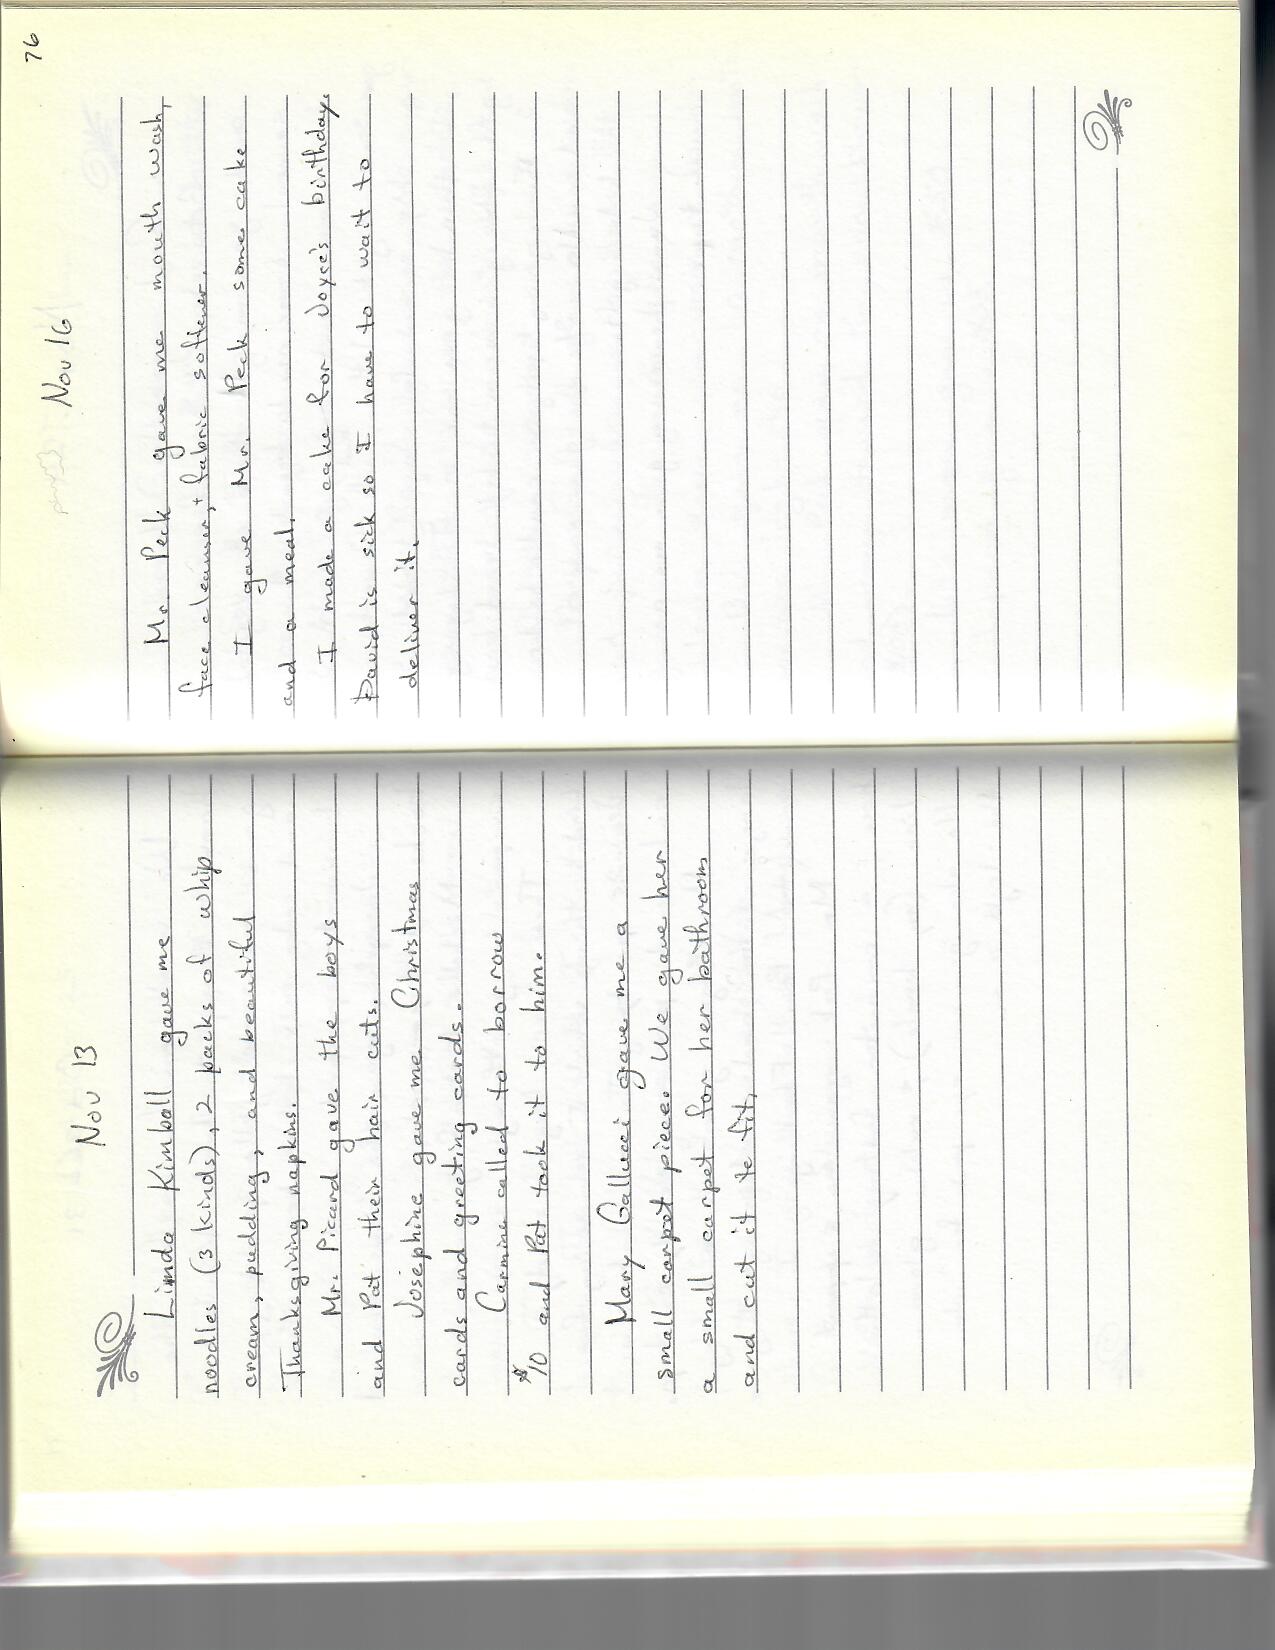 Nov 13
Linda Kimball gave me
noodles (3 kinds), 2 packs of whip
cream, pudding, and beautiful
Thanksgiving napkins.
Mr. Picard gave the boys
and Pat their hair cuts.
Josephine gave me Christmas
cards and greeting cards.
Carmine called to borrow
$10 and Pat took it to him.
Mary Gallucci gave me a
small carpet piece. We gave her
a small carpet for her bathroom
and cut it to fit.
76
Nov 16
Mr. Peck gave me mouth wash,
face cleanser, + fabric softener.
I gave Mr. Peck some cake
and a meal.
I made a cake for Joyce's birthday.
David is sick so I have to wait to
deliver it.